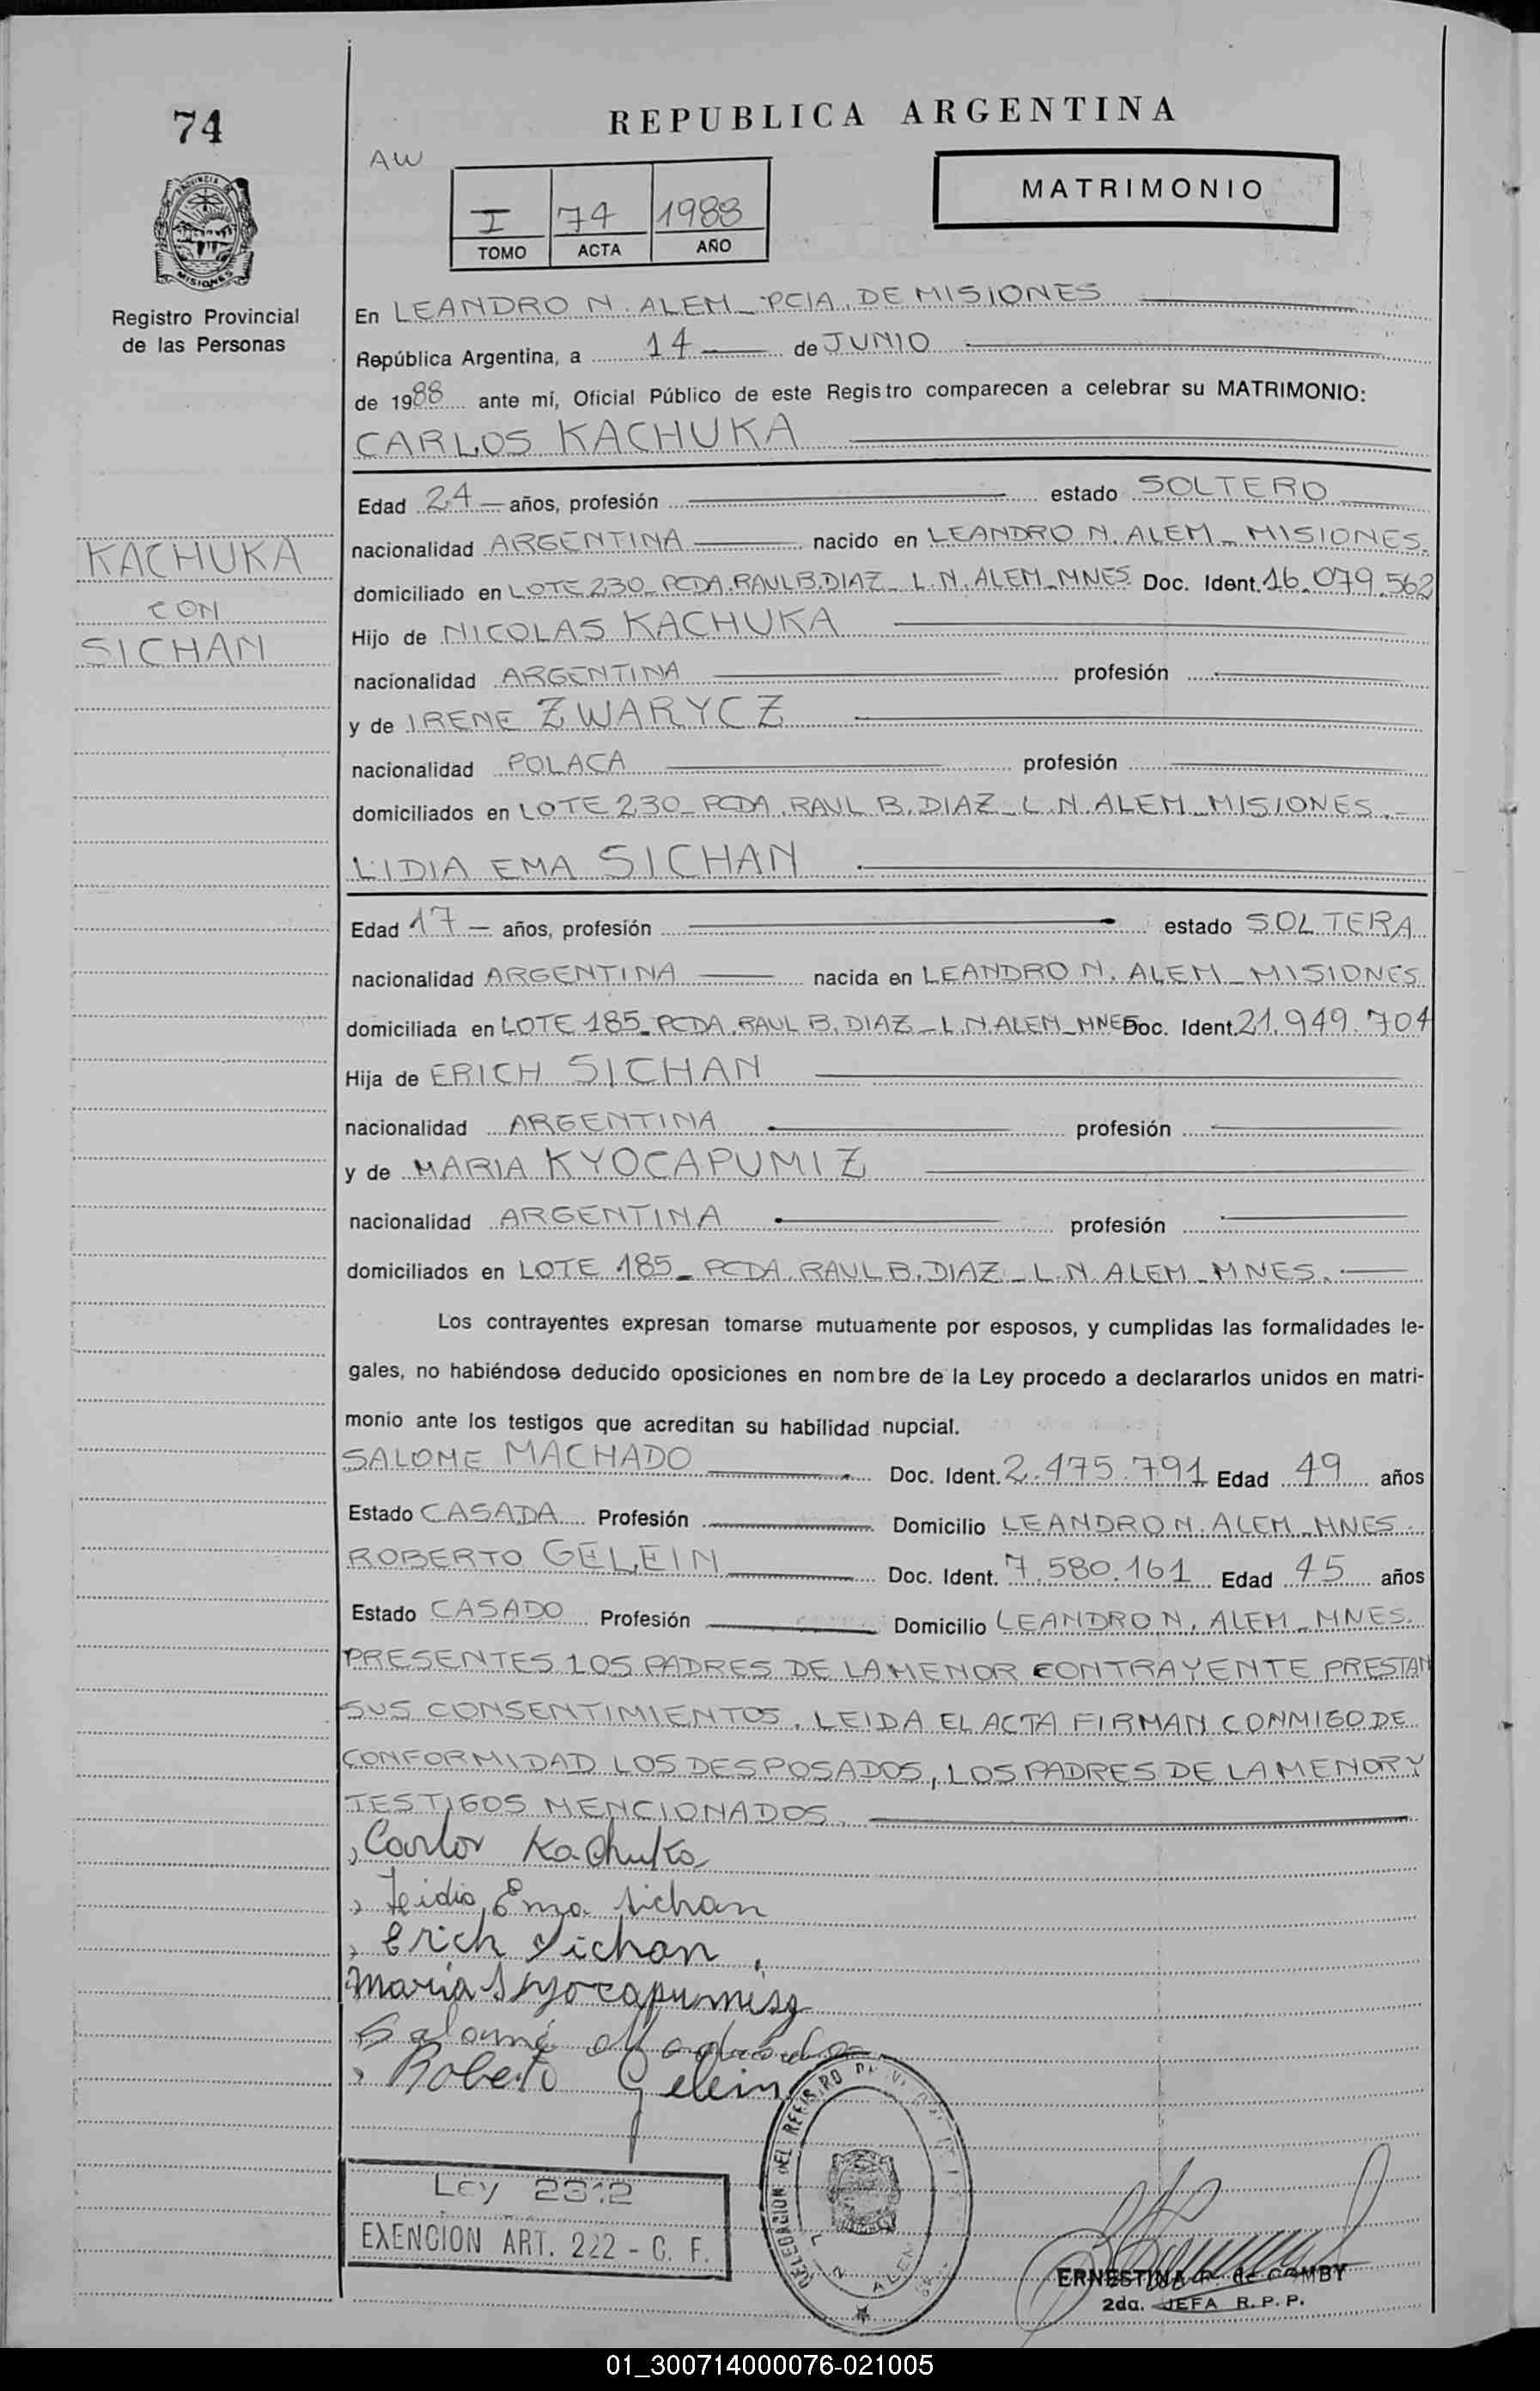 74
REPUBLICA ARGENTINA
AW
MATRIMONIO
I 74 1988
TOMO ACTA AÑO
MISIONES
Registro Provincial
de las Personas
En LEANDRO N. ALEM - PCIA. DE MISIONES
República Argentina, a 14 de JUNIO
de 1988 ante mí, Oficial Público de este Registro comparecen a celebrar su MATRIMONIO:
CARLOS KACHUKA
Edad 24 años, profesión estado SOLTERO
KACHUKA
CON
SICHAN
nacionalidad ARGENTINA nacido en LEANDRO N. ALEM - MISIONES.
domiciliado en LOTE 230 - PCDA. RAUL B. DIAZ - L. N. ALEM - MNES. Doc. Ident. 16.079.562
Hijo de NICOLAS KACHUKA
nacionalidad ARGENTINA profesión
y de IRENE ZWARYCZ
nacionalidad POLACA profesión
domiciliados en LOTE 230 - PCDA. RAUL B. DIAZ - L. N. ALEM - MISIONES.-
LIDIA EMA SICHAN
Edad 17 - años, profesión estado SOLTERA
nacionalidad ARGENTINA nacida en LEANDRO N. ALEM - MISIONES
domiciliada en LOTE 185 - PCDA. RAUL B. DIAZ - L. N. ALEM - MNES Doc. Ident. 21.949.704
Hija de ERICH SICHAN
nacionalidad ARGENTINA profesión
y de MARIA KYOCAPUMIZ
nacionalidad ARGENTINA profesión
domiciliados en LOTE 185 - PCDA. RAUL B. DIAZ - L. N. ALEM - MNES.
Los contrayentes expresan tomarse mutuamente por esposos, y cumplidas las formalidades le-
gales, no habiéndose deducido oposiciones en nombre de la Ley procedo a declararlos unidos en matri-
monio ante los testigos que acreditan su habilidad nupcial.
SALOME MACHADO Doc. Ident. 2.475.791 Edad 49 años
Estado CASADA Profesión Domicilio LEANDRO N. ALEM - MNES.
ROBERTO GELEIN Doc. Ident. 7.580.161 Edad 45 años
Estado CASADO Profesión Domicilio LEANDRO N. ALEM - MNES.
PRESENTES LOS PADRES DE LA MENOR CONTRAYENTE PRESTAN
SUS CONSENTIMIENTOS. LEIDA EL ACTA FIRMAN CONMIGO DE
CONFORMIDAD LOS DESPOSADOS, LOS PADRES DE LA MENOR Y
TESTIGOS MENCIONADOS.
Carlos Kachuka
Lidia Ema Sichan
Erich Sichan
Maria
Salomé Machado
Roberto Gelein
DELEGACION DEL REGISTRO
L. N. ALEM
Ley 2312
EXENCION ART. 222 - C. F.
ERNESTINA de COMBY
2da. JEFA R. P. P.
01_300714000076-021005